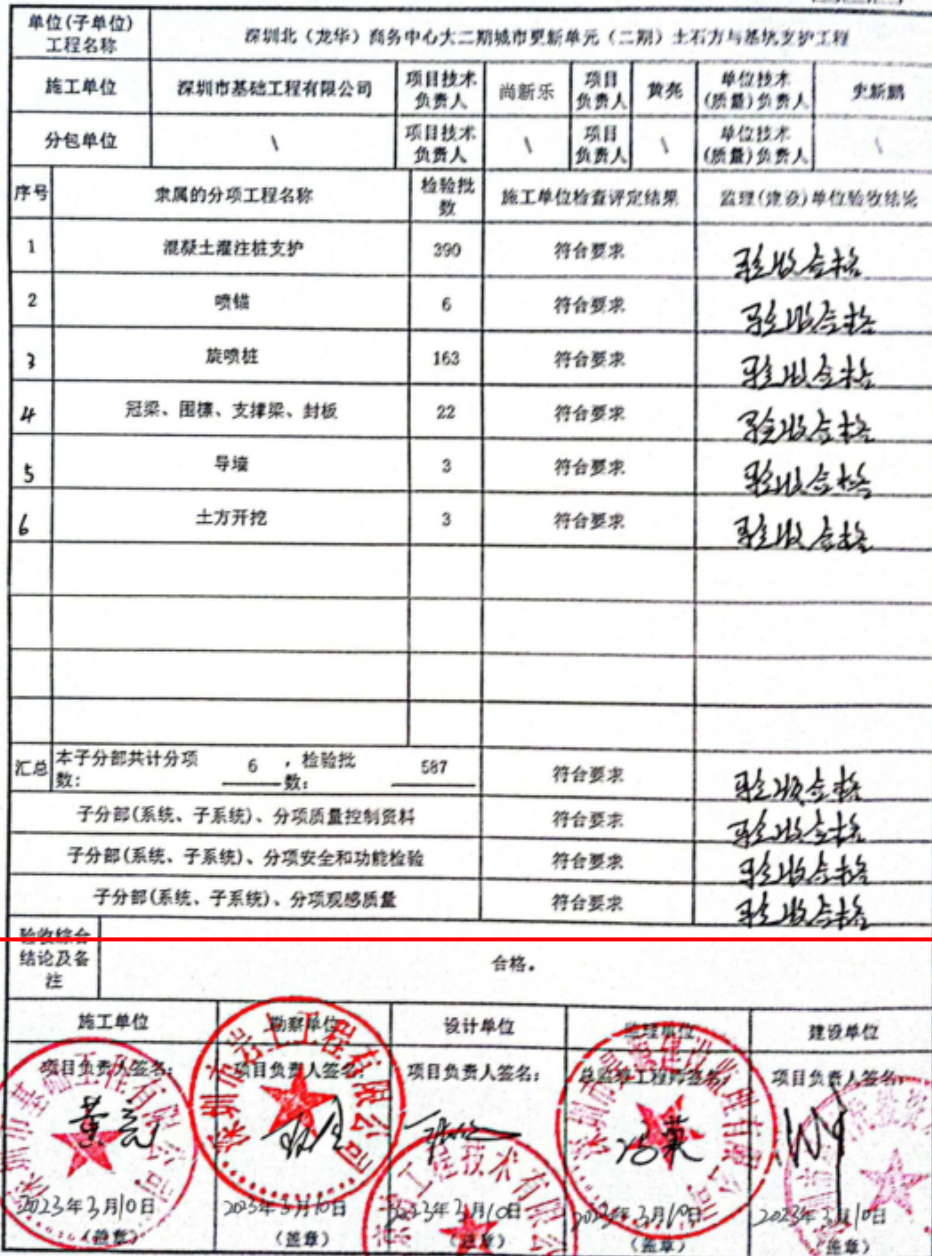 单位(子单位)
工程名称
深圳北（龙华）商务中心大二期城市更新单元（二期）土石方与基坑支护工程
施工单位 深圳市基础工程有限公司 项目技术负责人 尚新乐 项目负责人 黄亮 单位技术(质量)负责人 史新鹏
分包单位 \ 项目技术负责人 \ 项目负责人 \ 单位技术(质量)负责人 \
序号 隶属的分项工程名称 检验批数 施工单位检查评定结果 监理(建设)单位验收结论
1 混凝土灌注桩支护 390 符合要求 验收合格
2 喷锚 6 符合要求 验收合格
3 旋喷桩 163 符合要求 验收合格
4 冠梁、围檩、支撑梁、封板 22 符合要求 验收合格
5 导墙 3 符合要求 验收合格
6 土方开挖 3 符合要求 验收合格
汇总 本子分部共计分项数： 6 ，检验批数： 587 符合要求 验收合格
子分部(系统、子系统)、分项质量控制资料 符合要求 验收合格
子分部(系统、子系统)、分项安全和功能检验 符合要求 验收合格
子分部(系统、子系统)、分项观感质量 符合要求 验收合格
验收综合结论及备注 合格。
施工单位 勘察单位 设计单位 监理单位 建设单位
项目负责人签名： 项目负责人签名： 项目负责人签名： 总监理工程师签名： 项目负责人签名：
黄亮
2023年3月10日 2023年3月10日 2023年3月10日 2023年3月10日 2023年3月10日
(盖章) (盖章) (盖章) (盖章) (盖章)